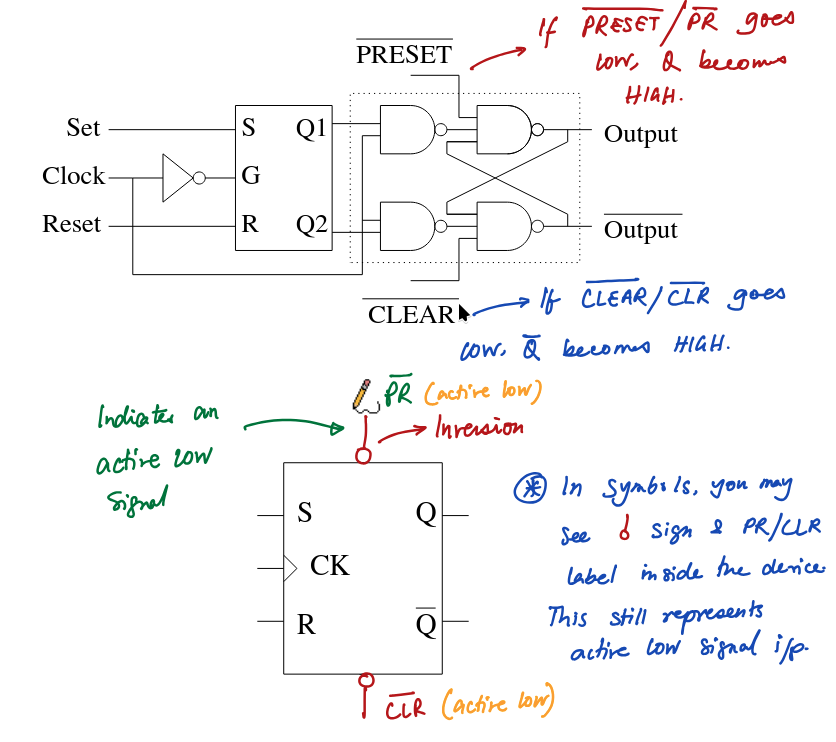 If PRESET/PR goes
low, Q becomes
HIGH.
PRESET
Set
Clock
Reset
S
G
R
Q1
Q2
Output
Output
CLEAR
If CLEAR/CLR goes
low, Q̅ becomes HIGH.
PR (active low)
Inversion
Indicates an
active low
signal
S
CK
R
Q
Q̅
CLR (active low)
* In symbols, you may
see sign & PR/CLR
label inside the device.
This still represents
active low signal i/p.